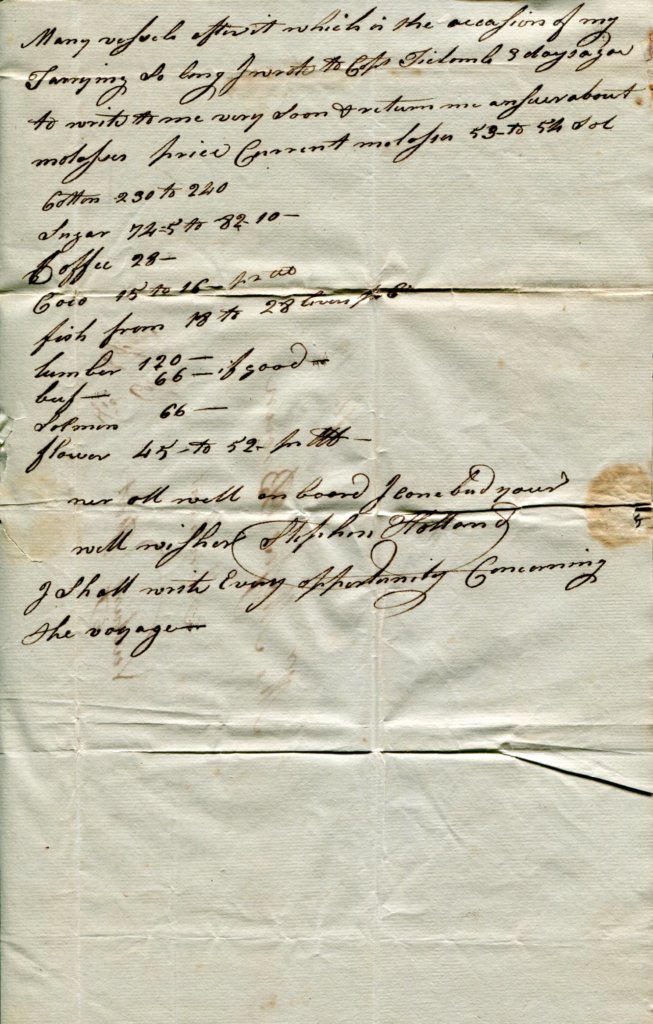 Many vessels after it which is the occasion of my
Tarrying So long I wrote to Cap Titcomb 3 days agoe
to write to me very Soon & return me answer about
molasses price Current molasses 53 to 54 Sol
Cotton 230 to 240
Sugar 74-5 to 82-10 —
Coffee 28 —
Coco 15 to 16 —
fish from 18 to 28 livers pr C
lumber 120 —
beef — 66 — if good —
Solmon 66 —
flower 45 - to 52 -
ner all well on board I conclud your
well wisher Stephen Holland
I Shall write Every opportunity Concerning
the voyage —